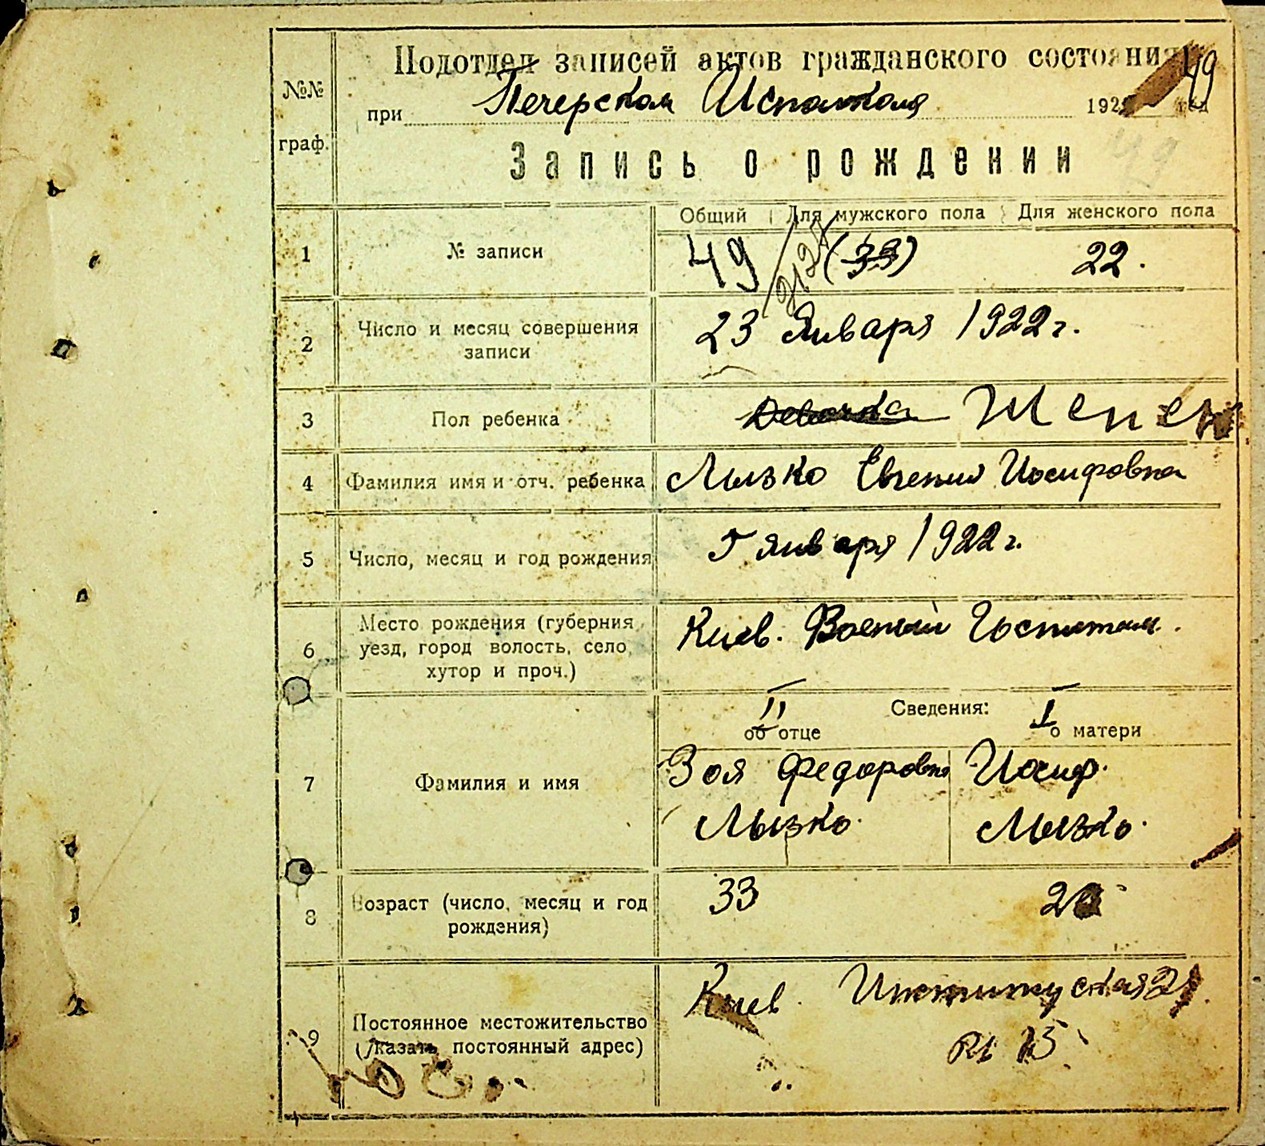 Подотдел записей актов гражданского состояния 49
№№ граф.
при Печерском Исполкоме 192
Запись о рождении
49
Общий Для мужского пола Для женского пола
1 № записи 49 (33) 22.
2 Число и месяц совершения записи 23 Января 1922 г.
3 Пол ребенка Девочка Женск
4 Фамилия имя и отч. ребенка Лызко Евгения Иосифовна
5 Число, месяц и год рождения 5 января 1922 г.
6 Место рождения (губерния уезд, город волость, село, хутор и проч.) Киев. Военный Госпиталь.
Сведения:
II I
об отце о матери
7 Фамилия и имя
Зоя Федоровна Иосиф.
Лызко. Лызко.
8 Возраст (число, месяц и год рождения) 33
9 Постоянное местожительство (указать постоянный адрес)
Киев. Институтская
15